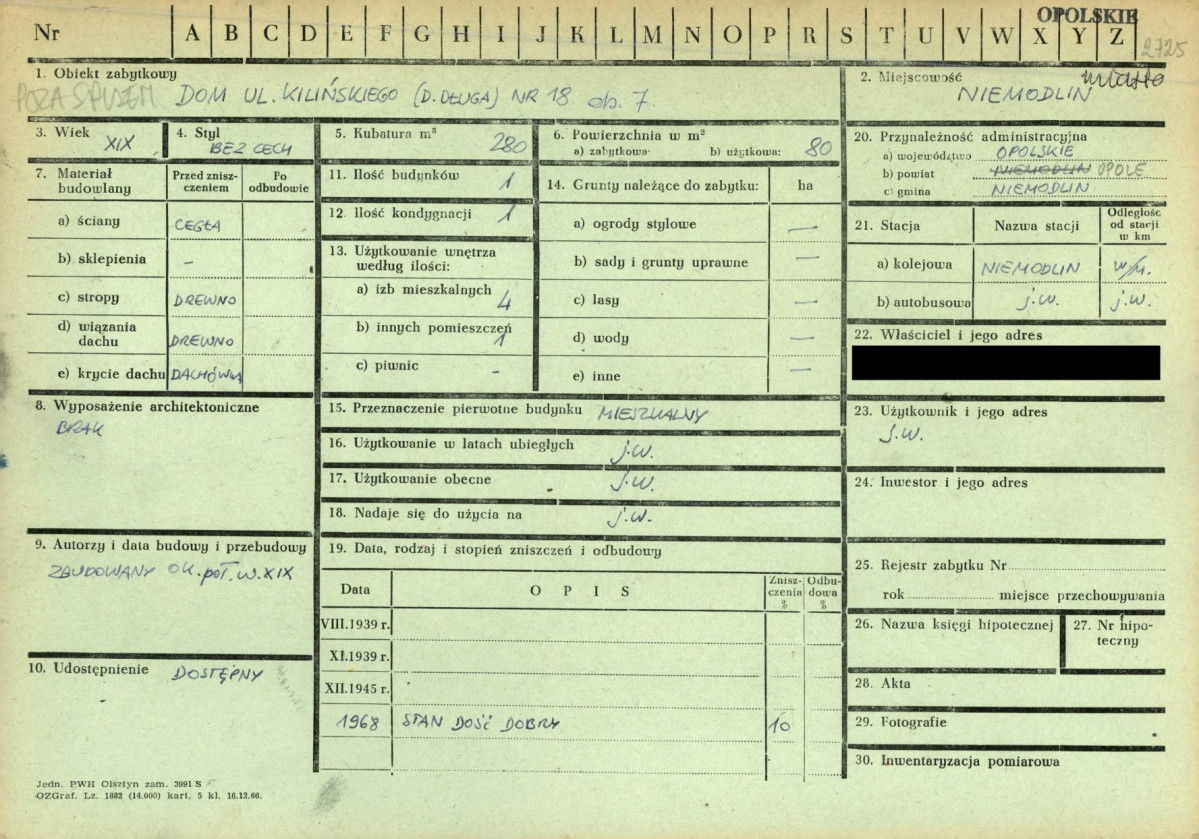 OPOLSKIE
Nr A B C D E F G H I J K L M N O P R S T U V W X Y Z
2725
1. Obiekt zabytkowy
POZA SPISEM DOM UL. KILIŃSKIEGO (D. DŁUGA) NR 18 ob. 7.
2. Miejscowość miasto
NIEMODLIN
3. Wiek
XIX
4. Styl
BEZ CECH
5. Kubatura m³
280
6. Powierzchnia w m²
a) zabytkowa: b) użytkowa: 80
7. Materiał budowlany
Przed zniszczeniem
Po odbudowie
a) ściany CEGŁA
b) sklepienia –
c) stropy DREWNO
d) wiązania dachu DREWNO
e) krycie dachu DACHÓWKA
8. Wyposażenie architektoniczne
BRAK
9. Autorzy i data budowy i przebudowy
ZBUDOWANY OK. poł. w. XIX
10. Udostępnienie DOSTĘPNY
11. Ilość budynków 1
12. Ilość kondygnacji 1
13. Użytkowanie wnętrza
według ilości:
a) izb mieszkalnych 4
b) innych pomieszczeń 1
c) piwnic –
14. Grunty należące do zabytku: ha
a) ogrody stylowe —
b) sady i grunty uprawne —
c) lasy —
d) wody —
e) inne —
15. Przeznaczenie pierwotne budynku MIESZKALNY
16. Użytkowanie w latach ubiegłych j.w.
17. Użytkowanie obecne j.w.
18. Nadaje się do użycia na j.w.
19. Data, rodzaj i stopień zniszczeń i odbudowy
Data O P I S Zniszczenia % Odbudowa %
VIII.1939 r.
XI.1939 r.
XII.1945 r.
1968 STAN DOŚĆ DOBRY 10
20. Przynależność administracyjna
a) województwo OPOLSKIE
b) powiat NIEMODLIN OPOLE
c) gmina NIEMODLIN
21. Stacja Nazwa stacji Odległość od stacji w km
a) kolejowa NIEMODLIN w/m.
b) autobusowa j.w. j.w.
22. Właściciel i jego adres
23. Użytkownik i jego adres
J.W.
24. Inwestor i jego adres
25. Rejestr zabytku Nr
rok miejsce przechowywania
26. Nazwa księgi hipotecznej
27. Nr hipoteczny
28. Akta
29. Fotografie
30. Inwentaryzacja pomiarowa
Jedn. PWH Olsztyn zam. 3991 S
OZGraf. Lz. 1882 (14.000) kart. 5 kl. 16.12.66.